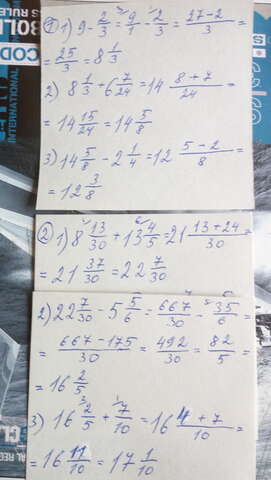 ① 1) 9 - 2/3 = 9/1 - 2/3 = 27-2/3 =
= 25/3 = 8 1/3
2) 8 1/3 + 6 7/24 = 14 8+7/24 =
= 14 15/24 = 14 5/8
3) 14 5/8 - 2 1/4 = 12 5-2/8 =
= 12 3/8
② 1) 8 13/30 + 13 4/5 = 21 13+24/30 =
= 21 37/30 = 22 7/30
2) 22 7/30 - 5 5/6 = 667/30 - 35/6 =
= 667-175/30 = 492/30 = 82/5 =
= 16 2/5
3) 16 2/5 + 7/10 = 16 4+7/10 =
= 16 11/10 = 17 1/10
INTERNATIONAL